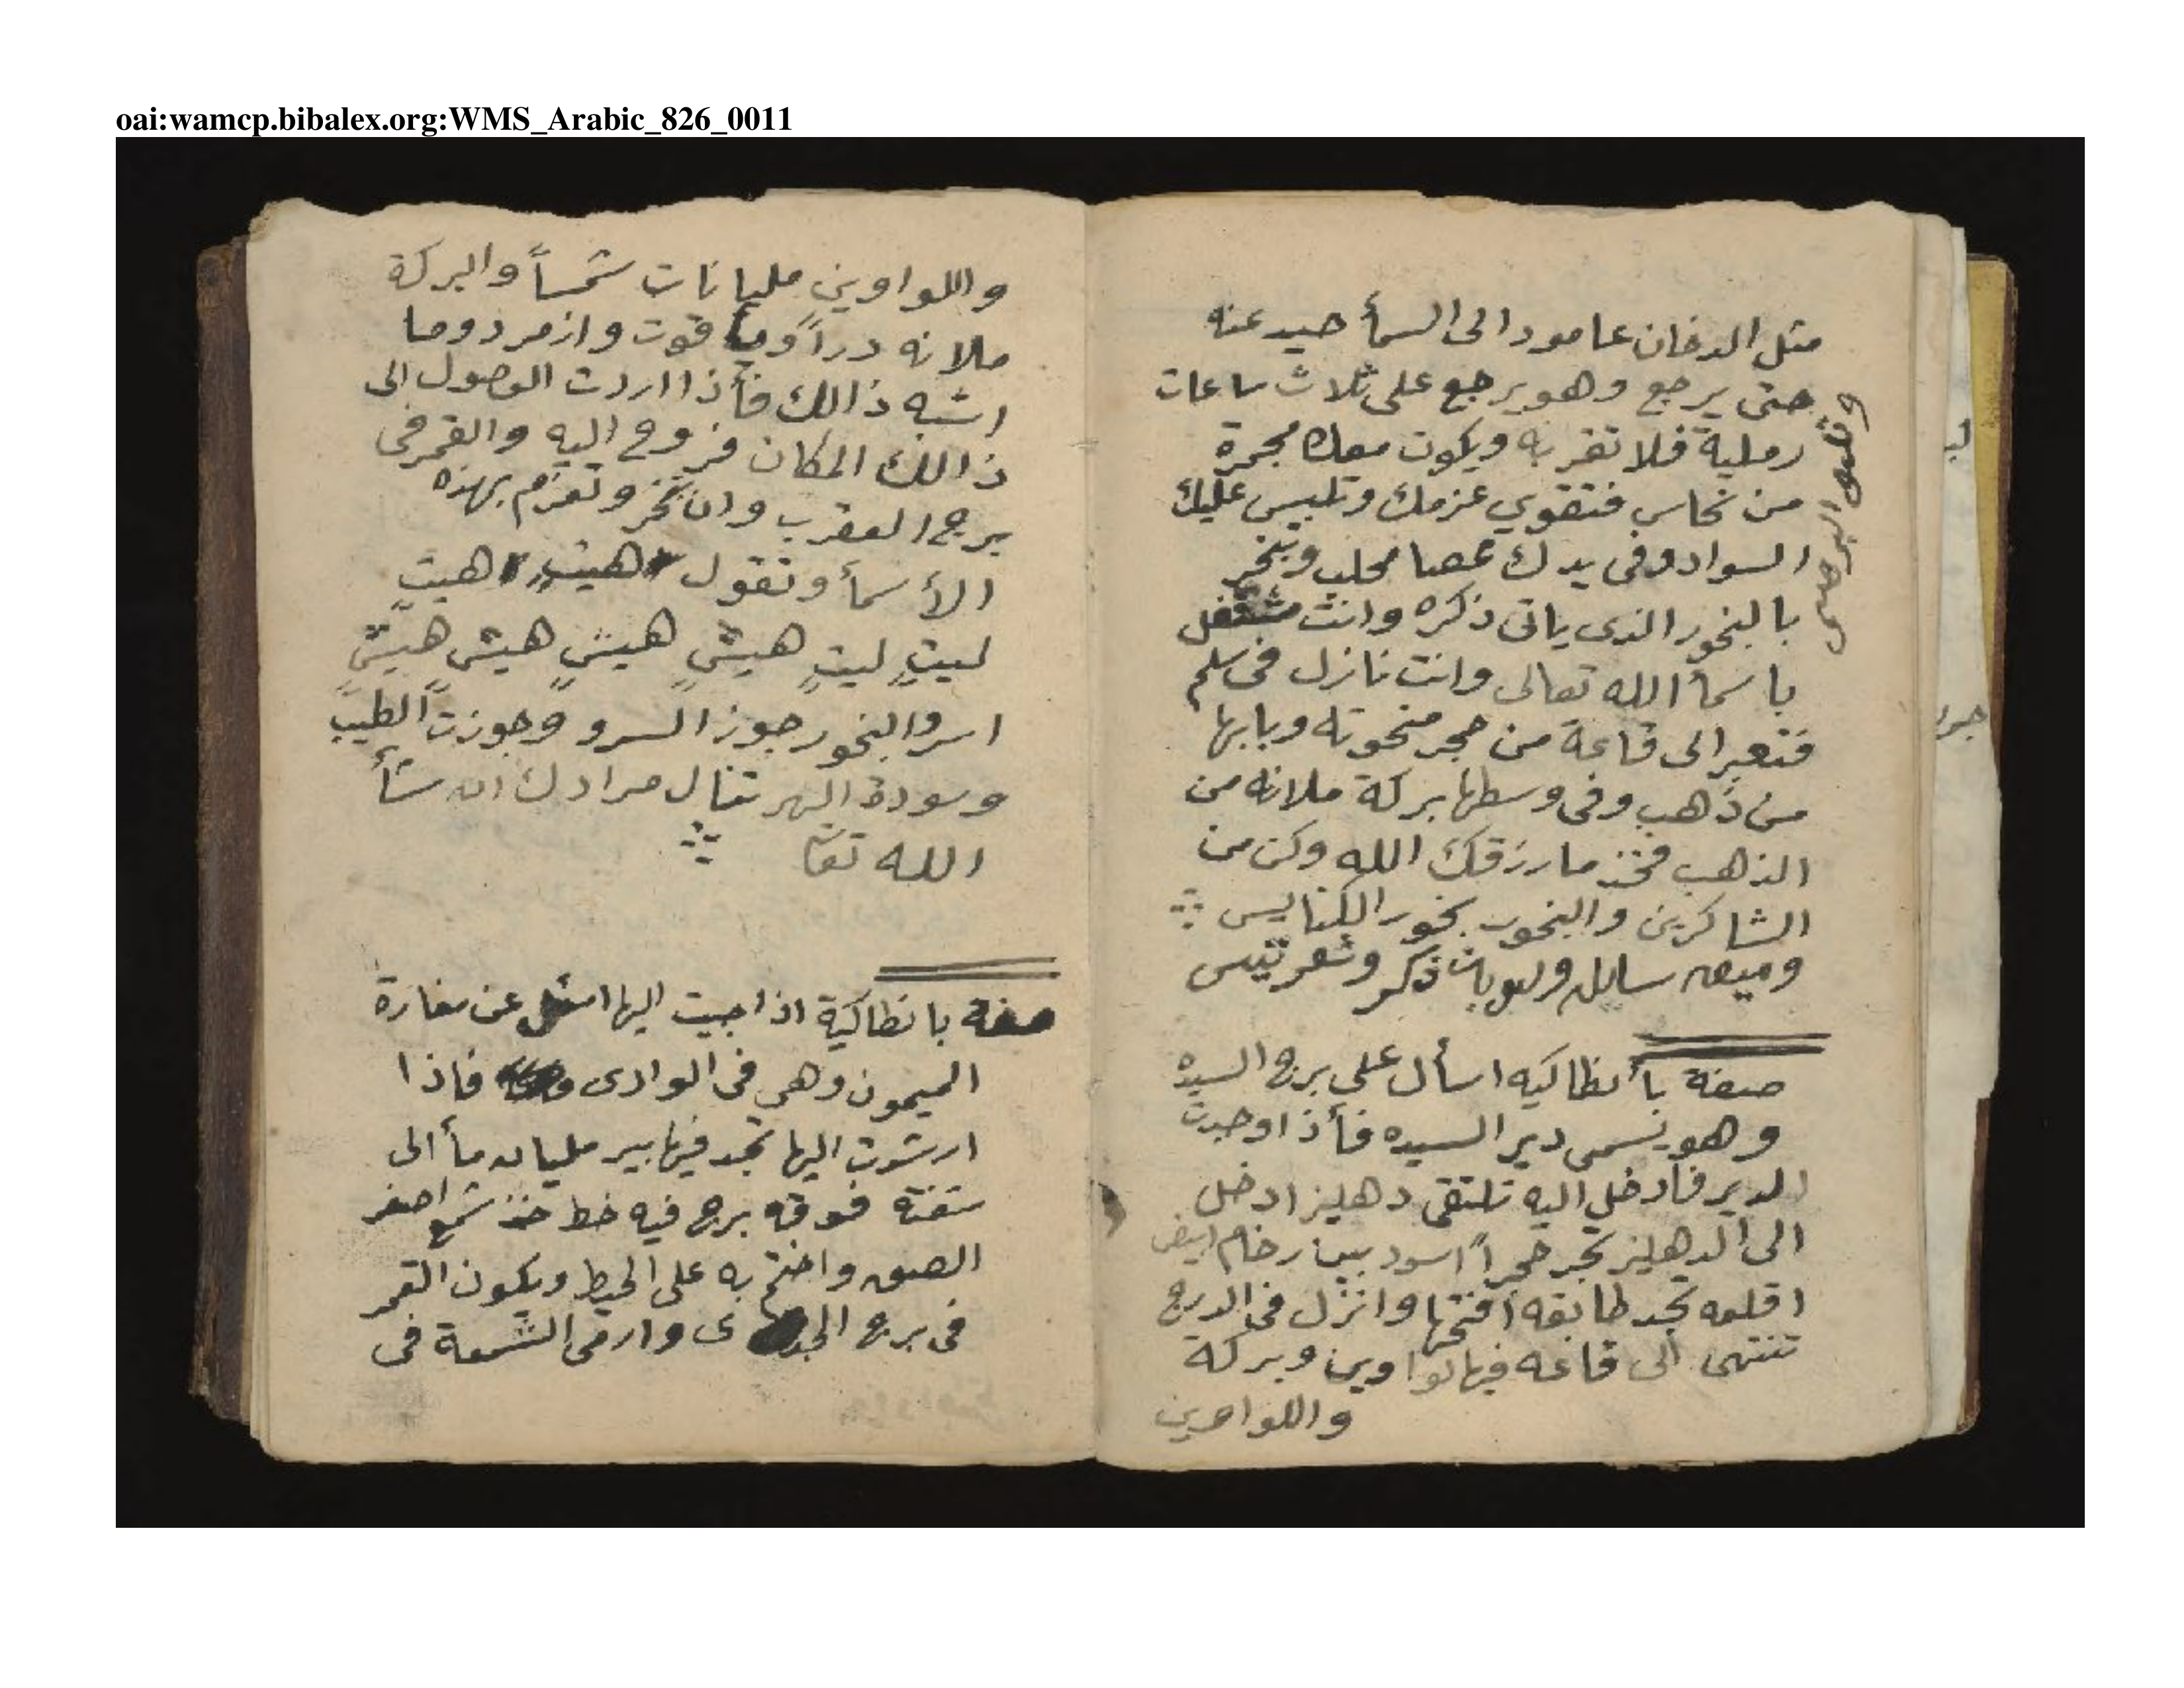 oai:wamcp.bibalex.org:WMS_Arabic_826_0011
مثل الدخان عامودا الى السمأ حيد عنه
حتى يرجع وهو يرجع على ثلاث ساعات
رملية فلا تقربه ويكون معك مجمرة
من نحاس فتقوي عزمك وتلبس عليك
السواد وفى يدك عصا محلب وتبخر
بالبخور الذى ياتى ذكره وانت مشتغل
باسمأ الله تعالى وانت نازل فى سلم
فتعبر الى قاعة من حجر منحوته وبابها
من ذهب وفى وسطها بركة ملانه من
الذهب فخذ ما رزقك الله وكن من
الشاكرين والبخور بخور الكنايس
وميعه سايله ولوبان ذكر وشعر تيس
صفة بأنطاكيه اسأل على برج السيده
وهو يسمى دير السيده فأذا وجدت
الدير فأدخل اليه تلتقى دهليز ادخل
الى الدهليز تجد حجراً اسود بين رخام ابيض
اقلعه تجد طابقه افتحها وانزل فى الدرج
تنتهى الى قاعه فيها لواوين وبركة
واللواوين
واللواوين مليانات شمساً والبركة
ملانه دراً وياقوت وازمرد وما
اشبه ذالك فأذا اردت الوصول الى
ذالك المكان فروح اليه والقمر فى
برج العقرب وان تبخر وتعزم بهذه
الأسمأ وتقول هيتٍ هيتٍ
ليتٍ ليتٍ هيشٍ هيشٍ هيشٍ هيشٍ
اسرو البخور جوز السرو وجوزت الطيب
وسودة النهر تنال مرادك ان شأ
الله تعا
صفة بانطاكية اذا جيت اليها اسئل عن مغارة
الميمون وهي فى الوادى فاذا
ارشدت اليها تجد فيها بير مليان مأ الى
شفته فوقه برج فيه خط خذ شمع اصفر
الصق واختم به على الحيط ويكون القمر
فى برج الجدى وارمى الشمعة فى